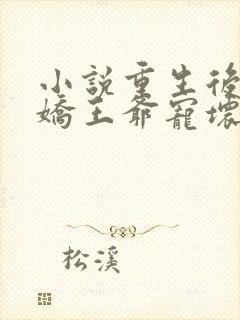 小說重生後
嬌王爺寵壞
松溪